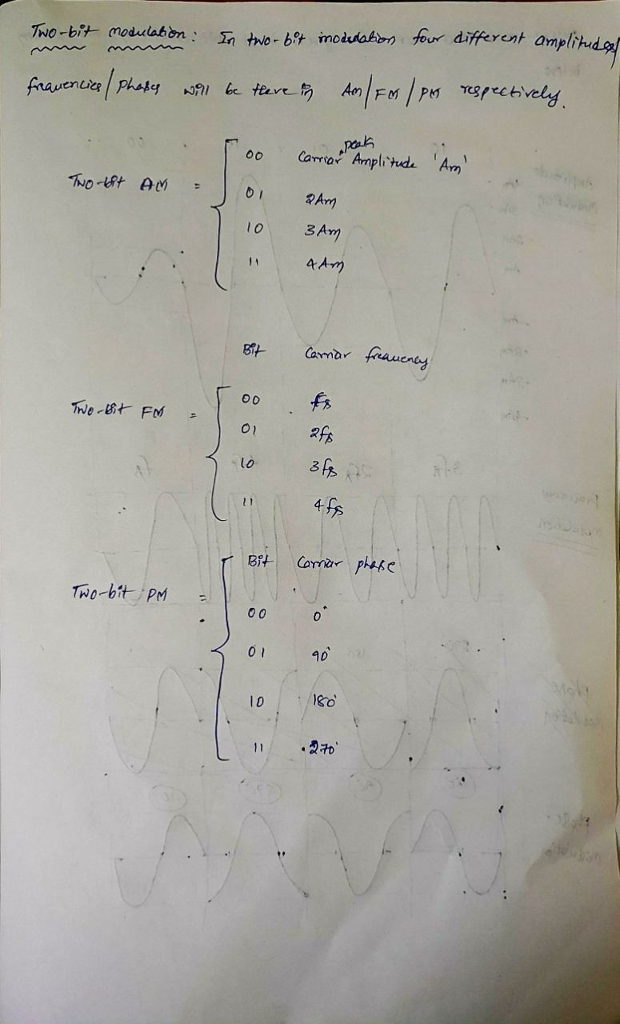 Two-bit modulation: In two-bit modulation four different amplitudes/
frequencies/phases will be there in AM/FM/PM respectively.
00 Carriar peak Amplitude 'Am'
Two-bit AM = 01 2Am
10 3Am
11 4Am
Bit Carriar frequency
Two-bit FM = 00
01
10
11
Bit Carriar phase
Two-bit PM = 00 0°
01 90°
10 180°
11 270°